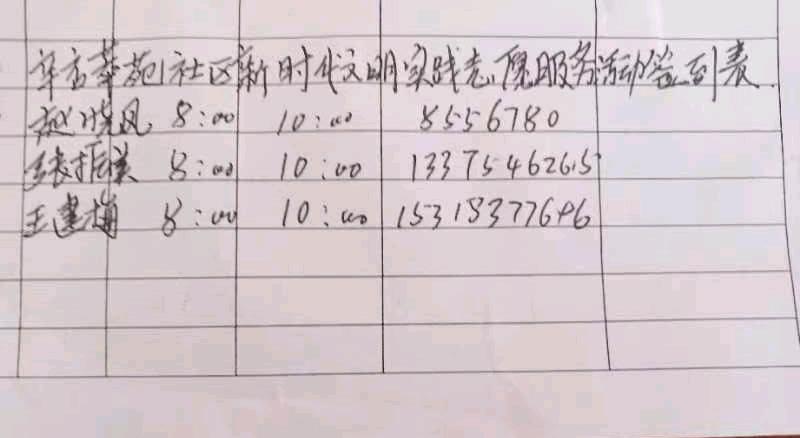 辛店华苑社区新时代文明实践志愿服务活动签到表
赵晓风 8:00 10:00 8556780
张振美 8:00 10:00 13375462615
王建 8:00 10:00 15318377696